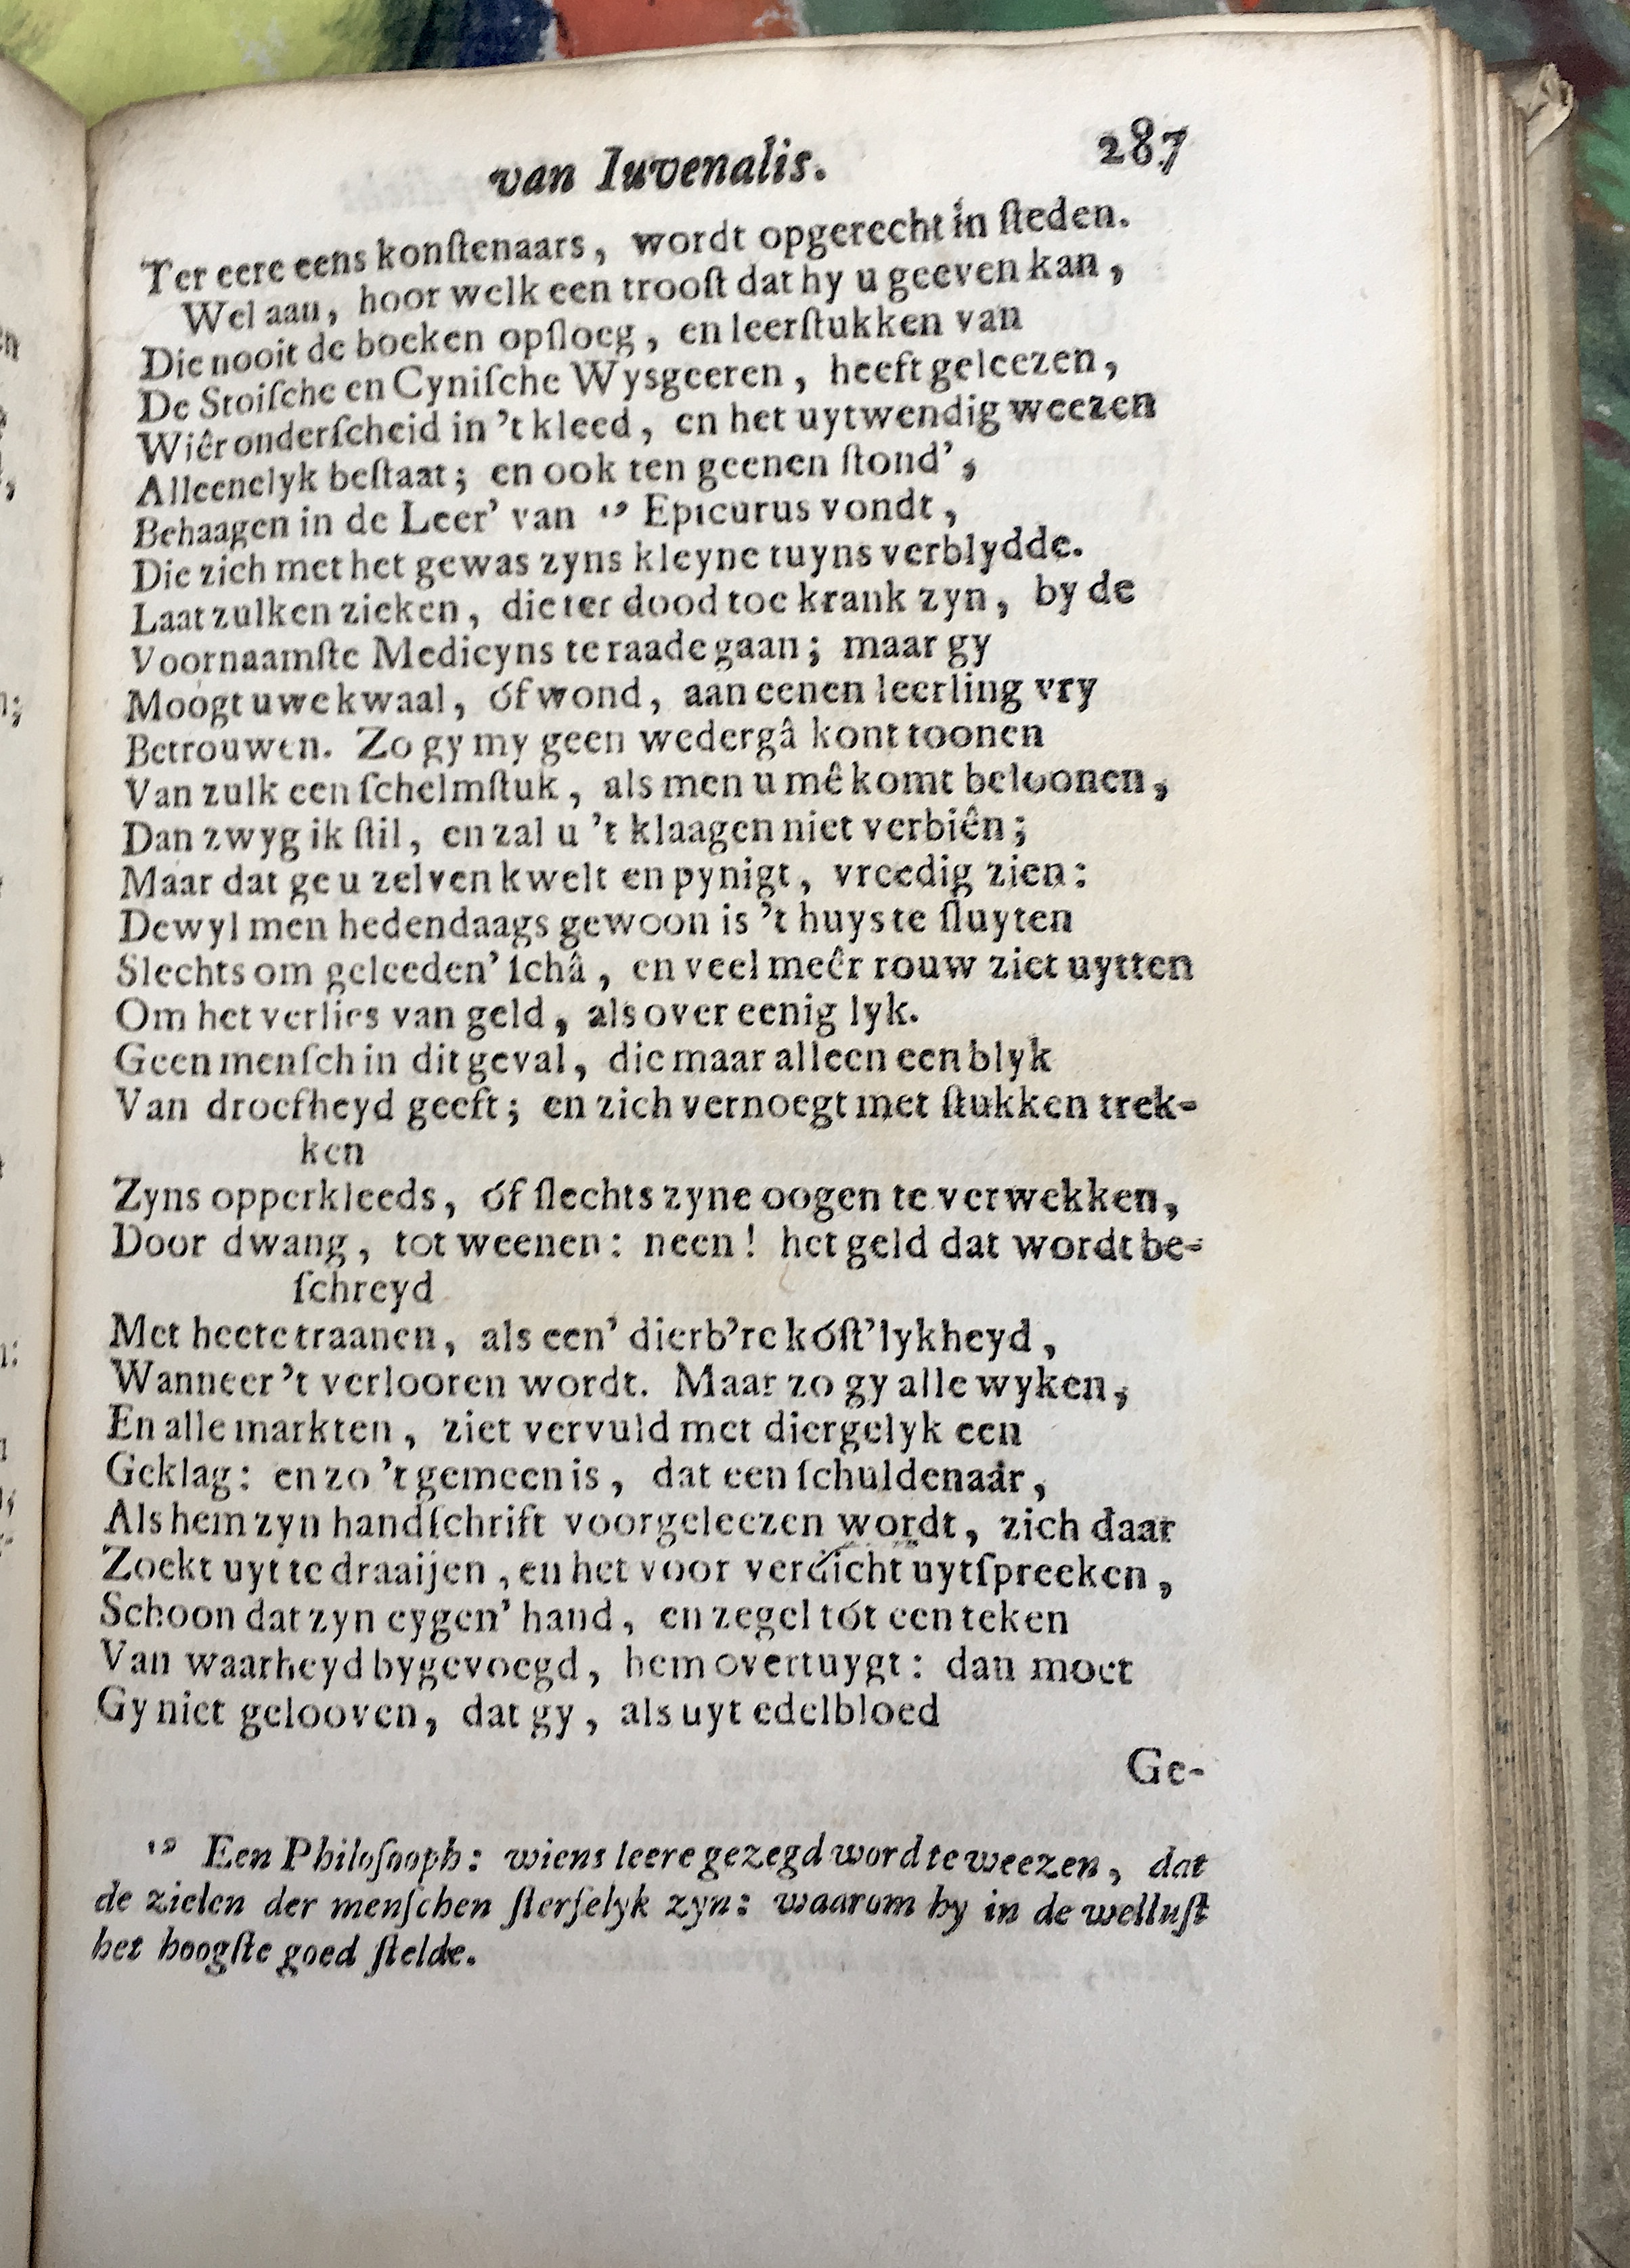 van Iuvenalis. 287
Ter eere eens konſtenaars, wordt opgerecht in ſteden.
Wel aan, hoor welk een trooſt dat hy u geeven kan,
Die nooit de boeken opſloeg, en leerſtukken van
De Stoiſche en Cyniſche Wysgeeren, heeft geleezen,
Wiêr onderſcheid in 't kleed, en het uytwendig weezen
Alleenelyk beſtaat; en ook ten geenen ſtond',
Behaagen in de Leer' van ¹⁹ Epicurus vondt,
Die zich met het gewas zyns kleyne tuyns verblydde.
Laat zulken zieken, die ter dood toe krank zyn, by de
Voornaamſte Medicyns te raade gaan; maar gy
Moogt uwe kwaal, óf wond, aan eenen leerling vry
Betrouwen. Zo gy my geen wedergâ kont toonen
Van zulk een ſchelmſtuk, als men u mê komt beloonen,
Dan zwyg ik ſtil, en zal u 't klaagen niet verbiên;
Maar dat ge u zelven kwelt en pynigt, vreedig zien:
Dewyl men hedendaags gewoon is 't huys te ſluyten
Slechts om geleeden' ſchâ, en veel meêr rouw ziet uytten
Om het verlies van geld, als over eenig lyk.
Geen menſch in dit geval, die maar alleen een blyk
Van droefheyd geeft; en zich vernoegt met ſtukken trek-
ken
Zyns opperkleeds, óf ſlechts zyne oogen te verwekken,
Door dwang, tot weenen: neen! het geld dat wordt be-
ſchreyd
Met heete traanen, als een' dierb're kóſt'lykheyd,
Wanneer 't verlooren wordt. Maar zo gy alle wyken,
En alle markten, ziet vervuld met diergelyk een
Geklag: en zo 't gemeen is, dat een ſchuldenaâr,
Als hem zyn handſchrift voorgeleezen wordt, zich daar
Zoekt uyt te draaijen, en het voor verdicht uytſpreeken,
Schoon dat zyn eygen' hand, en zegel tót een teken
Van waarheyd bygevoegd, hem overtuygt: dan moet
Gy niet gelooven, dat gy, als uyt edelbloed
Ge-
¹⁹ Een Philoſooph: wiens leere gezegd word te weezen, dat
de zielen der menſchen ſterfelyk zyn: waarom hy in de welluſt
het hoogſte goed ſtelde.